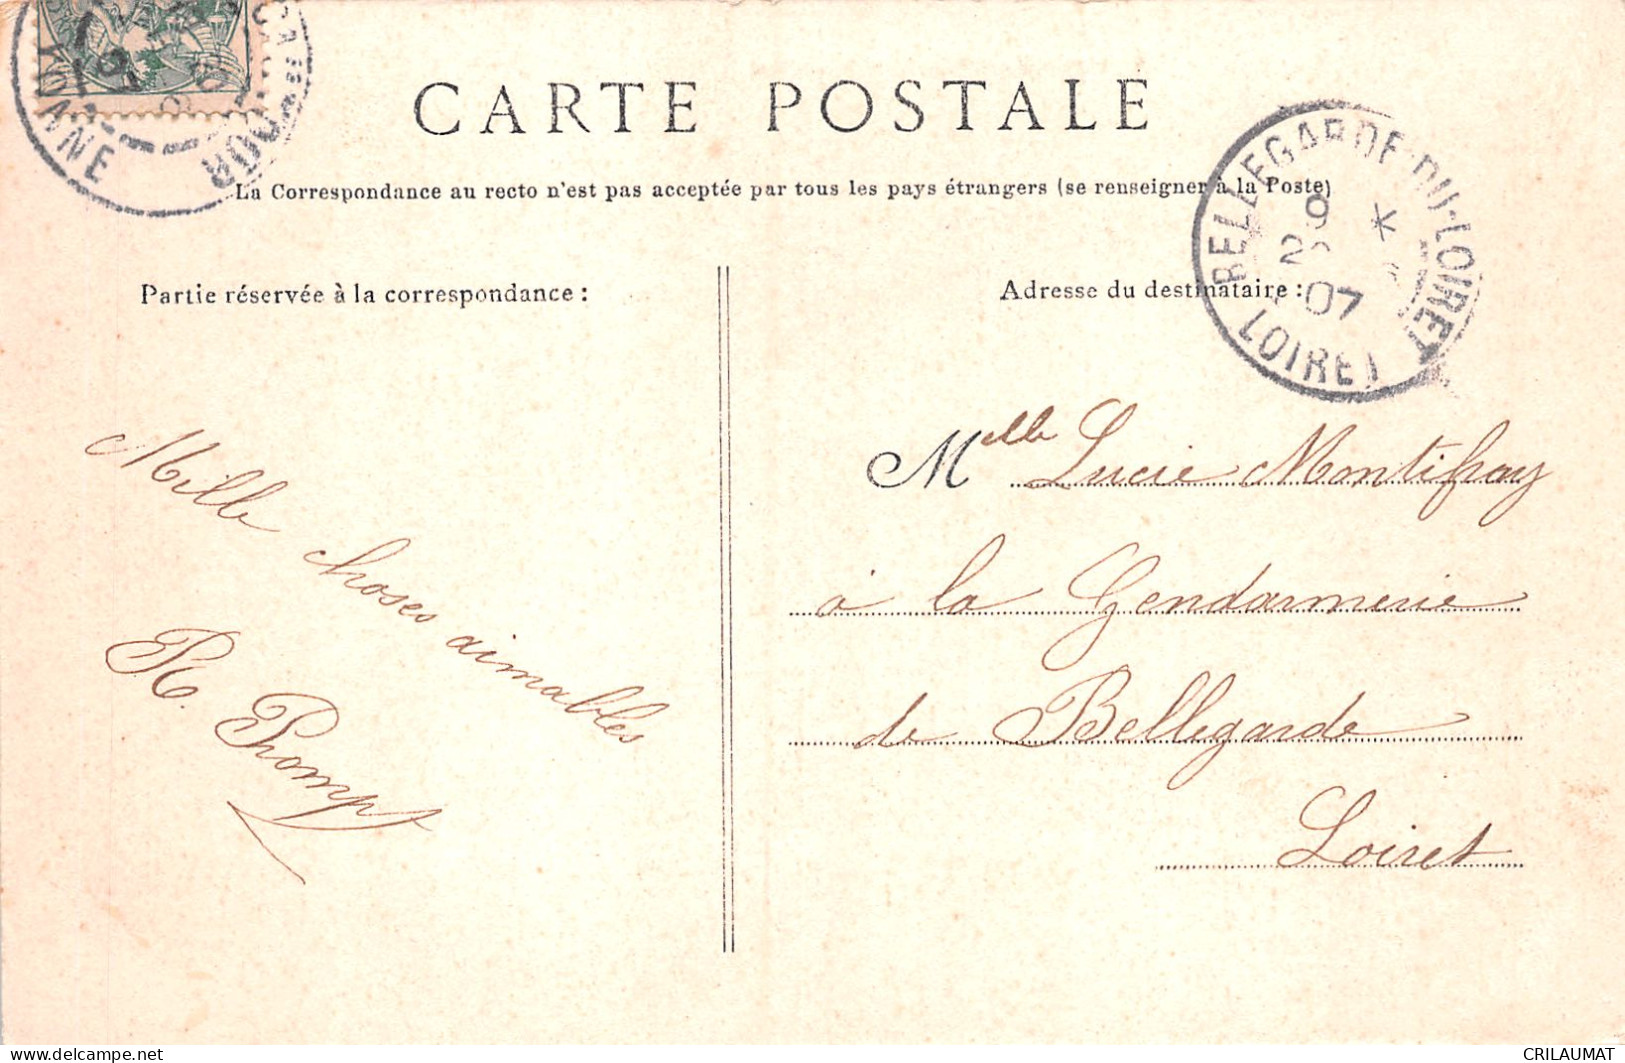 CARTE POSTALE
La Correspondance au recto n'est pas acceptée par tous les pays étrangers (se renseigner à la Poste)
BELLEGARDE-DU-LOIRET
LOIRET
07
Partie réservée à la correspondance :
Mille choses aimables
Adresse du destinataire :
Melle Lucie Montifray
à la Gendarmerie
de Bellegarde
Loiret
www.delcampe.net
CRILAUMAT